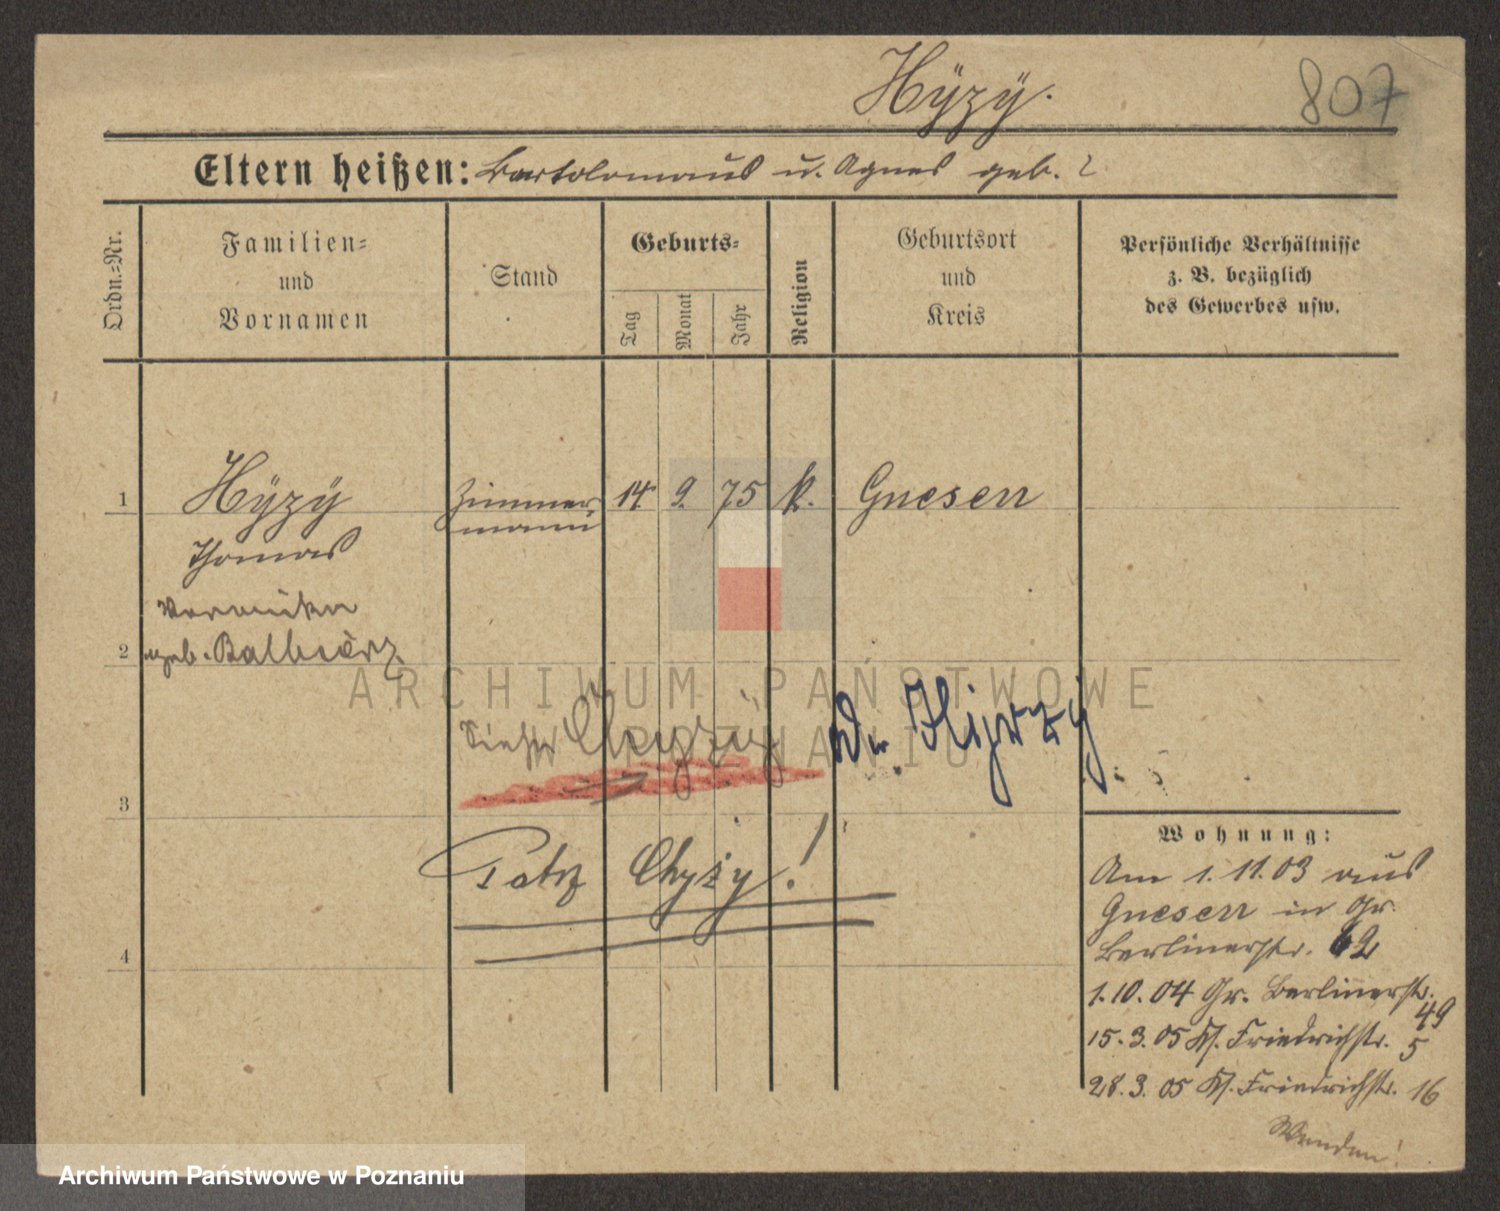 Hÿzÿ.
807
Eltern heißen: Bartolomaus u. Agnes geb. ?
Ordn.-Nr.
Familien-
und
Vornamen
Stand
Geburts-
Tag
Monat
Jahr
Religion
Geburtsort
und
Kreis
Persönliche Verhältnisse
z. B. bezüglich
des Gewerbes usw.
1
Hÿzÿ
Thomas
Zimmer-
mann
14. 9. 75 k. Gnesen
Veronika
2
geb.
ARCHIWUM PAŃSTWOWE
W POZNANIU
Siehe
3
Patrz Chyży!
4
Wohnung:
Am 1.11.03 aus
Gnesen in Gr.
Berlinerstr. 62
1.10.04 Gr. Berlinerstr.
49
15.3.05 Kl. Friedrichstr. 5
28.3.05 Kl. Friedrichstr. 16
Wenden!
Archiwum Państwowe w Poznaniu